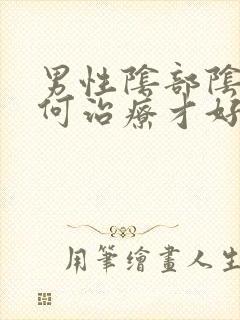 男性陰部陰
何治療才好
用筆繪畫人生